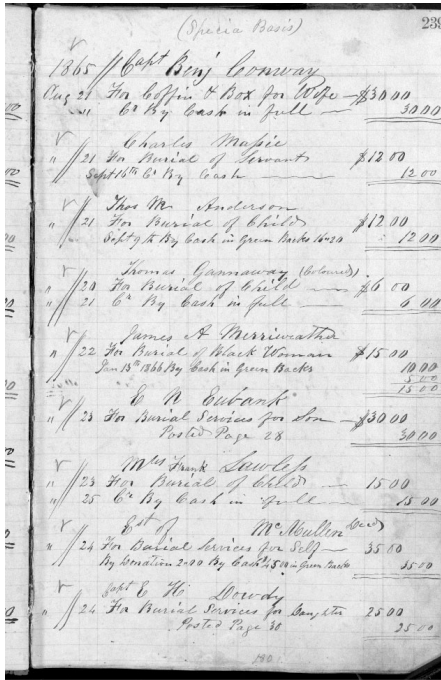 (Specia Basis)
239
1865 // Capt Benj Conway
Aug 21 For Coffin & Box for Wife — $30 00
" Cr By Cash in full — 30 00
Charles Massie
" // 21 For Burial of Servant $12 00
Sept 16th Cr By Cash — 12 00
Thos M. Anderson
" // 21 For Burial of Child $12 00
Sept 9th By Cash in Green Backs 16=20 12 00
Thomas Gannaway (Coloured)
" // 20 For Burial of Child — $6 00
" 21 Cr By Cash in full — 6 00
James A Merriweather
" // 22 For Burial of Black Woman $15 00
Jan 13th 1866 By Cash in Green Backs 10 00
5 00
15 00
E N Eubank
" // 23 For Burial Services for Son — $30 00
Posted Page 28 30 00
Mrs Frank Lawless
" // 23 For Burial of Child — 15 00
" 25 Cr By Cash in full — 15 00
Est of McMullen Decd
" // 24 For Burial Services for Self — 35 00
By Donation 2=00 By Cash in Green Backs 35 00
Capt E H Dowdy
" // 26 For Burial Services for Daughter 25 00
Posted Page 30 25 00